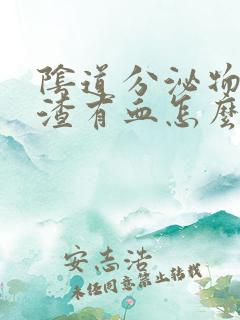 陰道分泌物
渣有血怎麼
安志浩
未经同意禁止转载